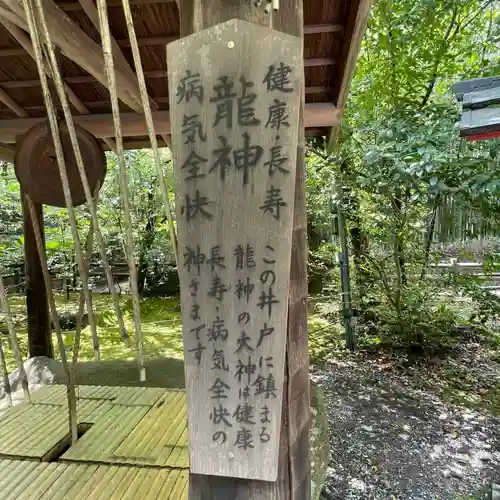 健康長寿
龍神
病気全快
この井戸に鎮まる
龍神の大神は健康
長寿病気全快の
神さまです